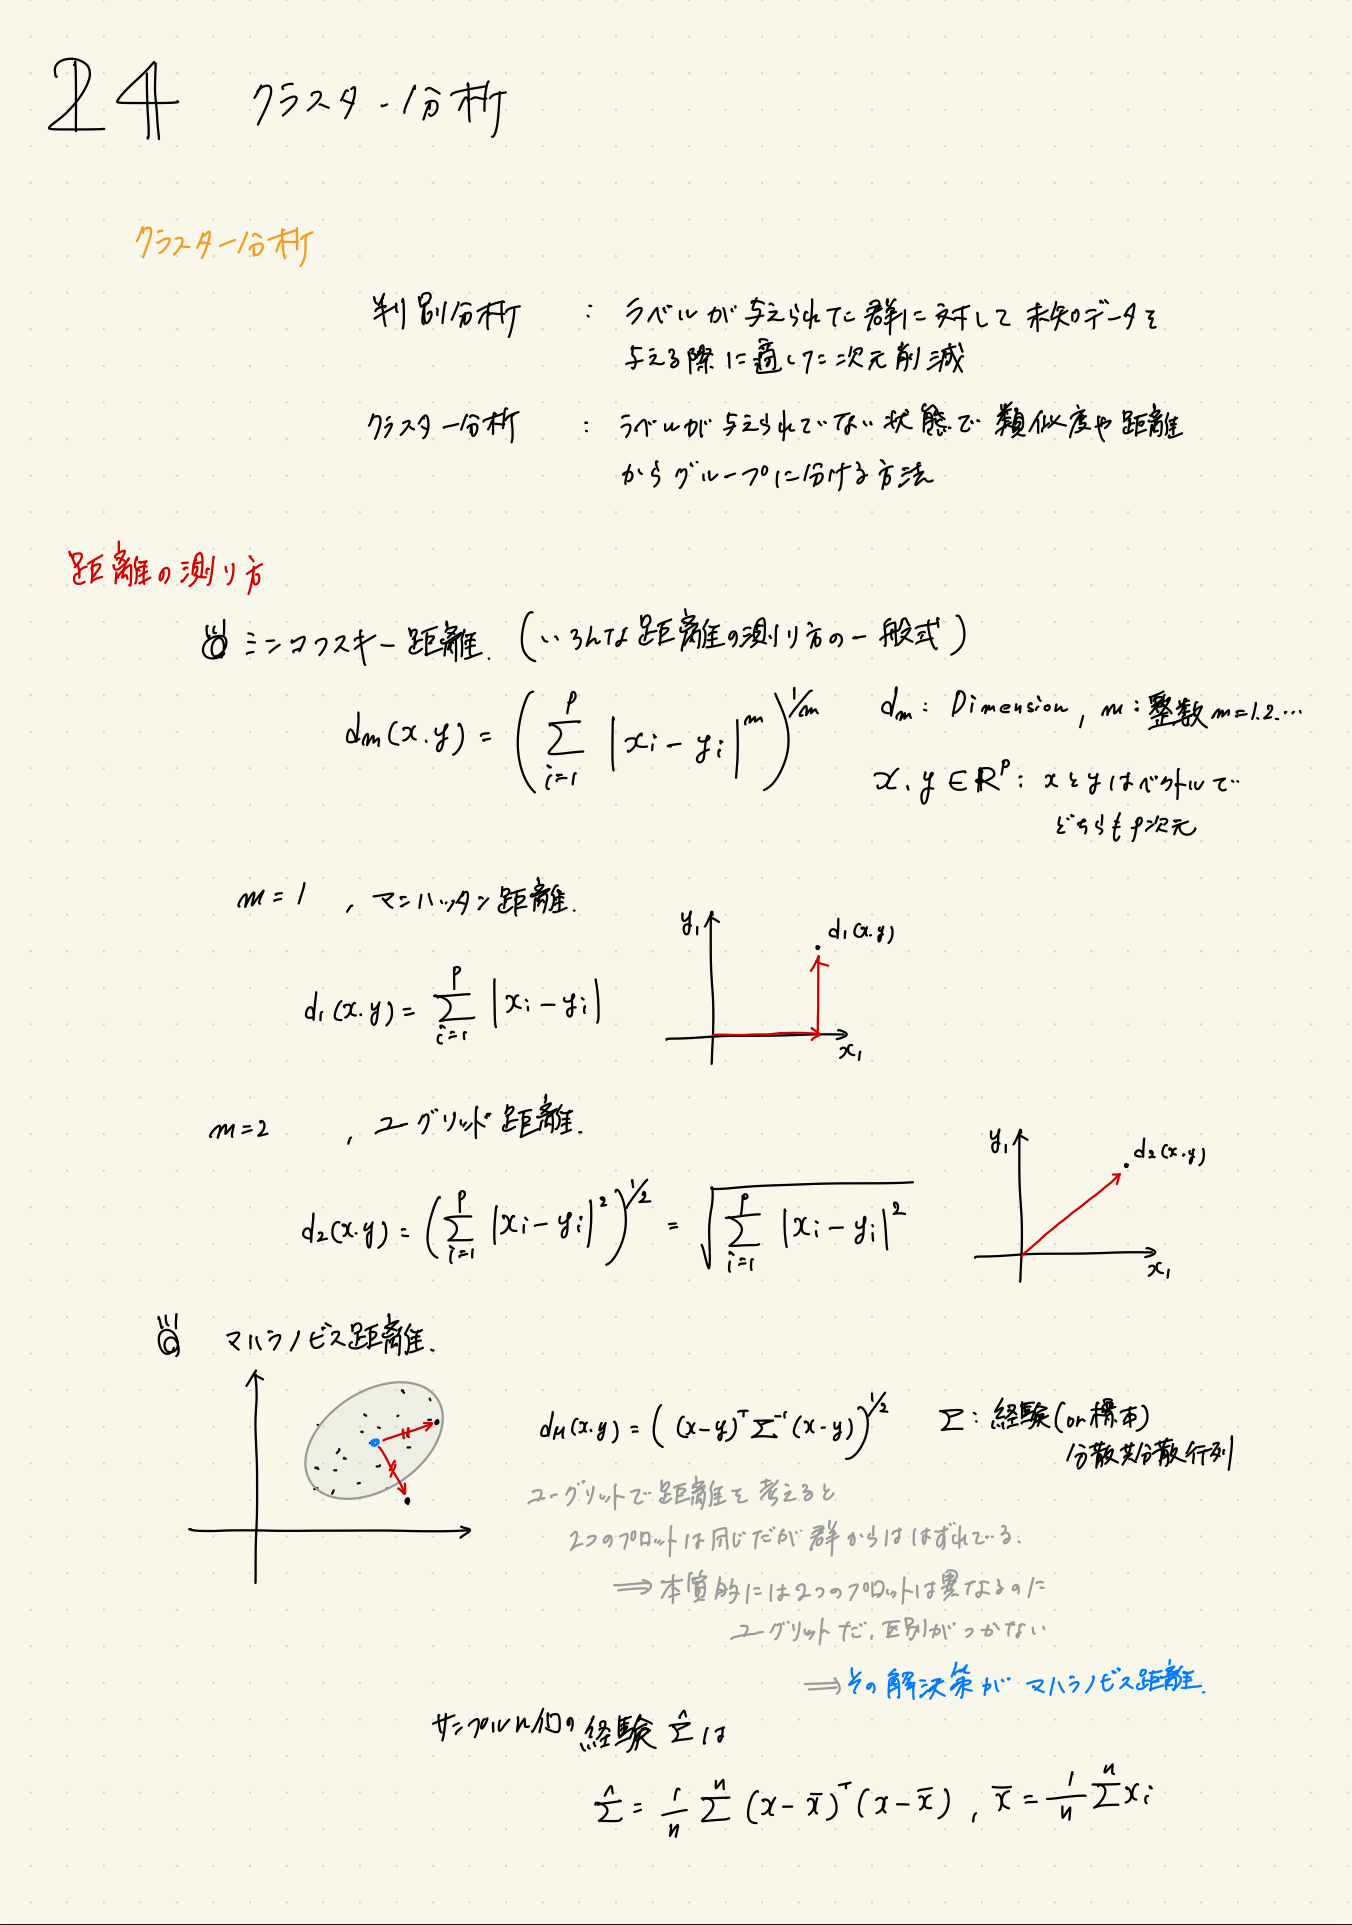 24 クラスター分析
クラスター分析
判別分析 : ラベルが与えられた群に対して未知データを
与える際に適した次元削減
クラスター分析 : ラベルが与えられていない状態で類似度や距離
からグループに分ける方法
距離の測り方
ミンコフスキー距離. (いろんな距離の測り方の一般式)
dm(x.y) = ( Σ_{i=1}^{p} |xi - yi|^m )^{1/m} dm: Dimension, m:整数 m=1.2.…
x.y ∈ R^p : xとyはベクトルで
どちらもp次元
m=1 , マンハッタン距離.
y1 d1(x.y)
d1(x.y) = Σ_{i=1}^{p} |xi - yi|
x1
m=2 , ユーグリッド距離.
y1 d2(x.y)
d2(x.y) = ( Σ_{i=1}^{p} |xi - yi|^2 )^{1/2} = √( Σ_{i=1}^{p} |xi - yi|^2 )
x1
マハラノビス距離.
dM(x.y) = ( (x-y)^T Σ^{-1} (x-y) )^{1/2} Σ: 経験(or標本)
分散共分散行列
ユーグリットで距離を考えると
2つのプロットは同じだが群からははずれている.
⇒ 本質的には2つのプロットは異なるのに
ユーグリットだ, 区別がつかない
⇒ その解決策がマハラノビス距離.
サンプルn個の経験 Σ^ は
Σ^ = 1/n Σ^n (x - x̄)^T (x - x̄) , x̄ = 1/n Σ^n xi